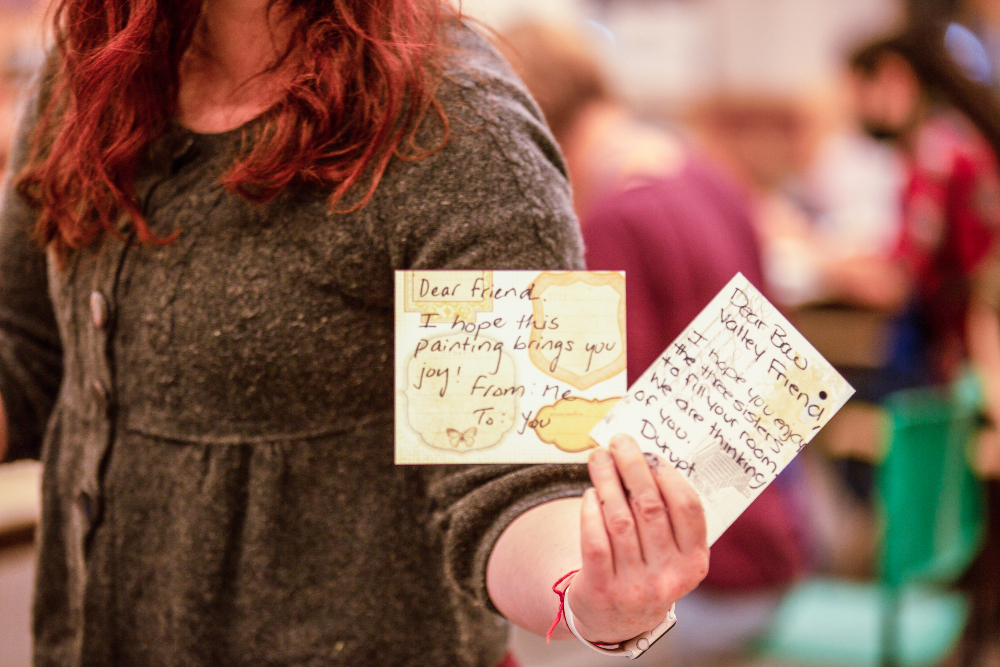 Dear friend.
I hope this
painting brings you
joy!
From: me
To: you
Dear Bow
Valley Friend,
I hope you enjoy
the three sisters
to fill your room.
We are thinking
of you.